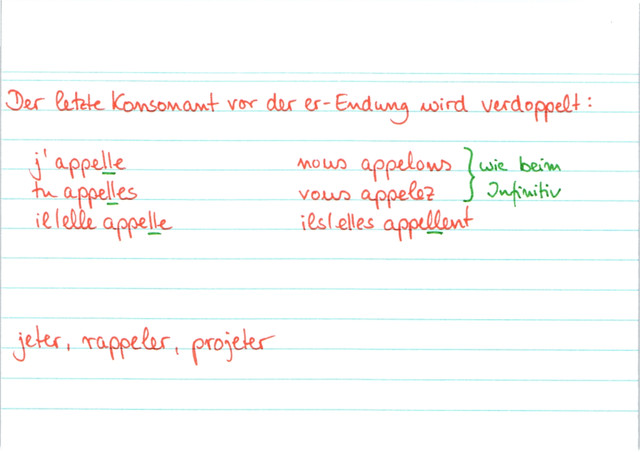 Der letzte Konsonant vor der er-Endung wird verdoppelt:
j'appelle nous appelons } wie beim
tu appelles vous appelez } Infinitiv
il/elle appelle ils/elles appellent
jeter, rappeler, projeter